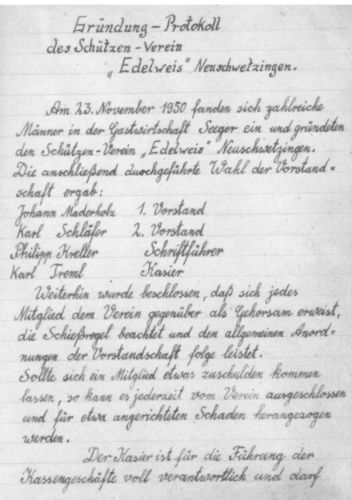 Gründung – Protokoll
des Schützen – Verein
„Edelweis" Neuschwetzingen.
Am 23. November 1950 fanden sich zahlreiche
Männer in der Gastwirtschaft Seeger ein und gründeten
den Schützen-Verein „Edelweis" Neuschwetzingen.
Die anschließend durchgeführte Wahl der Vorstand=
schaft ergab:
Johann Maderholz 1. Vorstand
Karl Schläfer 2. Vorstand
Philipp Krelter Schriftführer
Karl Treml Kasier
Weiterhin wurde beschlossen, daß sich jedes
Mitglied dem Verein gegenüber als Gehorsam erweist,
die Schießregel beachtet und den allgemeinen Anord=
nungen der Vorstandschaft folge leistet.
Sollte sich ein Mitglied etwas zuschulden kommen
lassen, so kann es jederzeit vom Verein ausgeschlossen
und für etwa angerichteten Schaden herangezogen
werden.
Der Kasier ist für die Führung der
Kassengeschäfte voll verantwortlich und darf